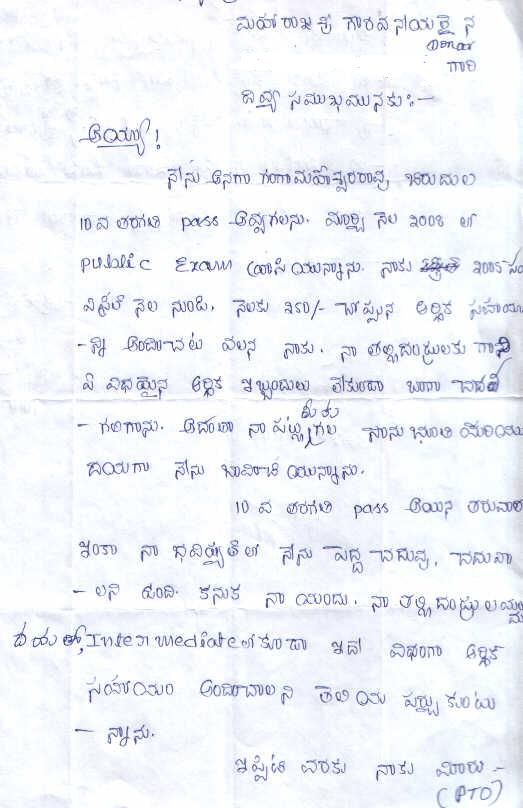 మహారాజశ్రీ గౌరవనీయులైన
Donar
గారి
దివ్య సముఖమునకు:-
అయ్యా!
నేను అనగా గంగామహేశ్వరరావు, జరుదుల
10 వ తరగతి pass అవ్వగలను. మార్చి నెల 2008 లో
Public Exam రాసి యున్నాను. నాకు 2005 సం
ఏప్రిల్ నెల నుండి, నెలకు 250/- చొప్పున ఆర్థిక సహాయ
-న్ని అందించుట వలన నాకు, నా తల్లిదండ్రులకు గాని
ఏ విధమైన ఆర్థిక ఇబ్బందులు లేకుండా బాగా చదవ
-గలిగాను. అదంతా నా పట్ల మీకు గల సానుభూతి మరియు
దయగా నేను భావించి యున్నాను.
10 వ తరగతి pass అయిన తరువాత
ఇంకా నా భవిష్యత్ లో నేను పెద్ద చదువు, చదువా
-లని ఉంది. కనుక నా యందు, నా తల్లిదండ్రుల యందు
దయతో, Inter mediate లో కూడా ఇదే విధంగా ఆర్థిక
సహాయం అందించాలని తెలియ పర్చుకుంటు
-న్నాను.
ఇప్పటి వరకు నాకు మీరు -
(PTO)